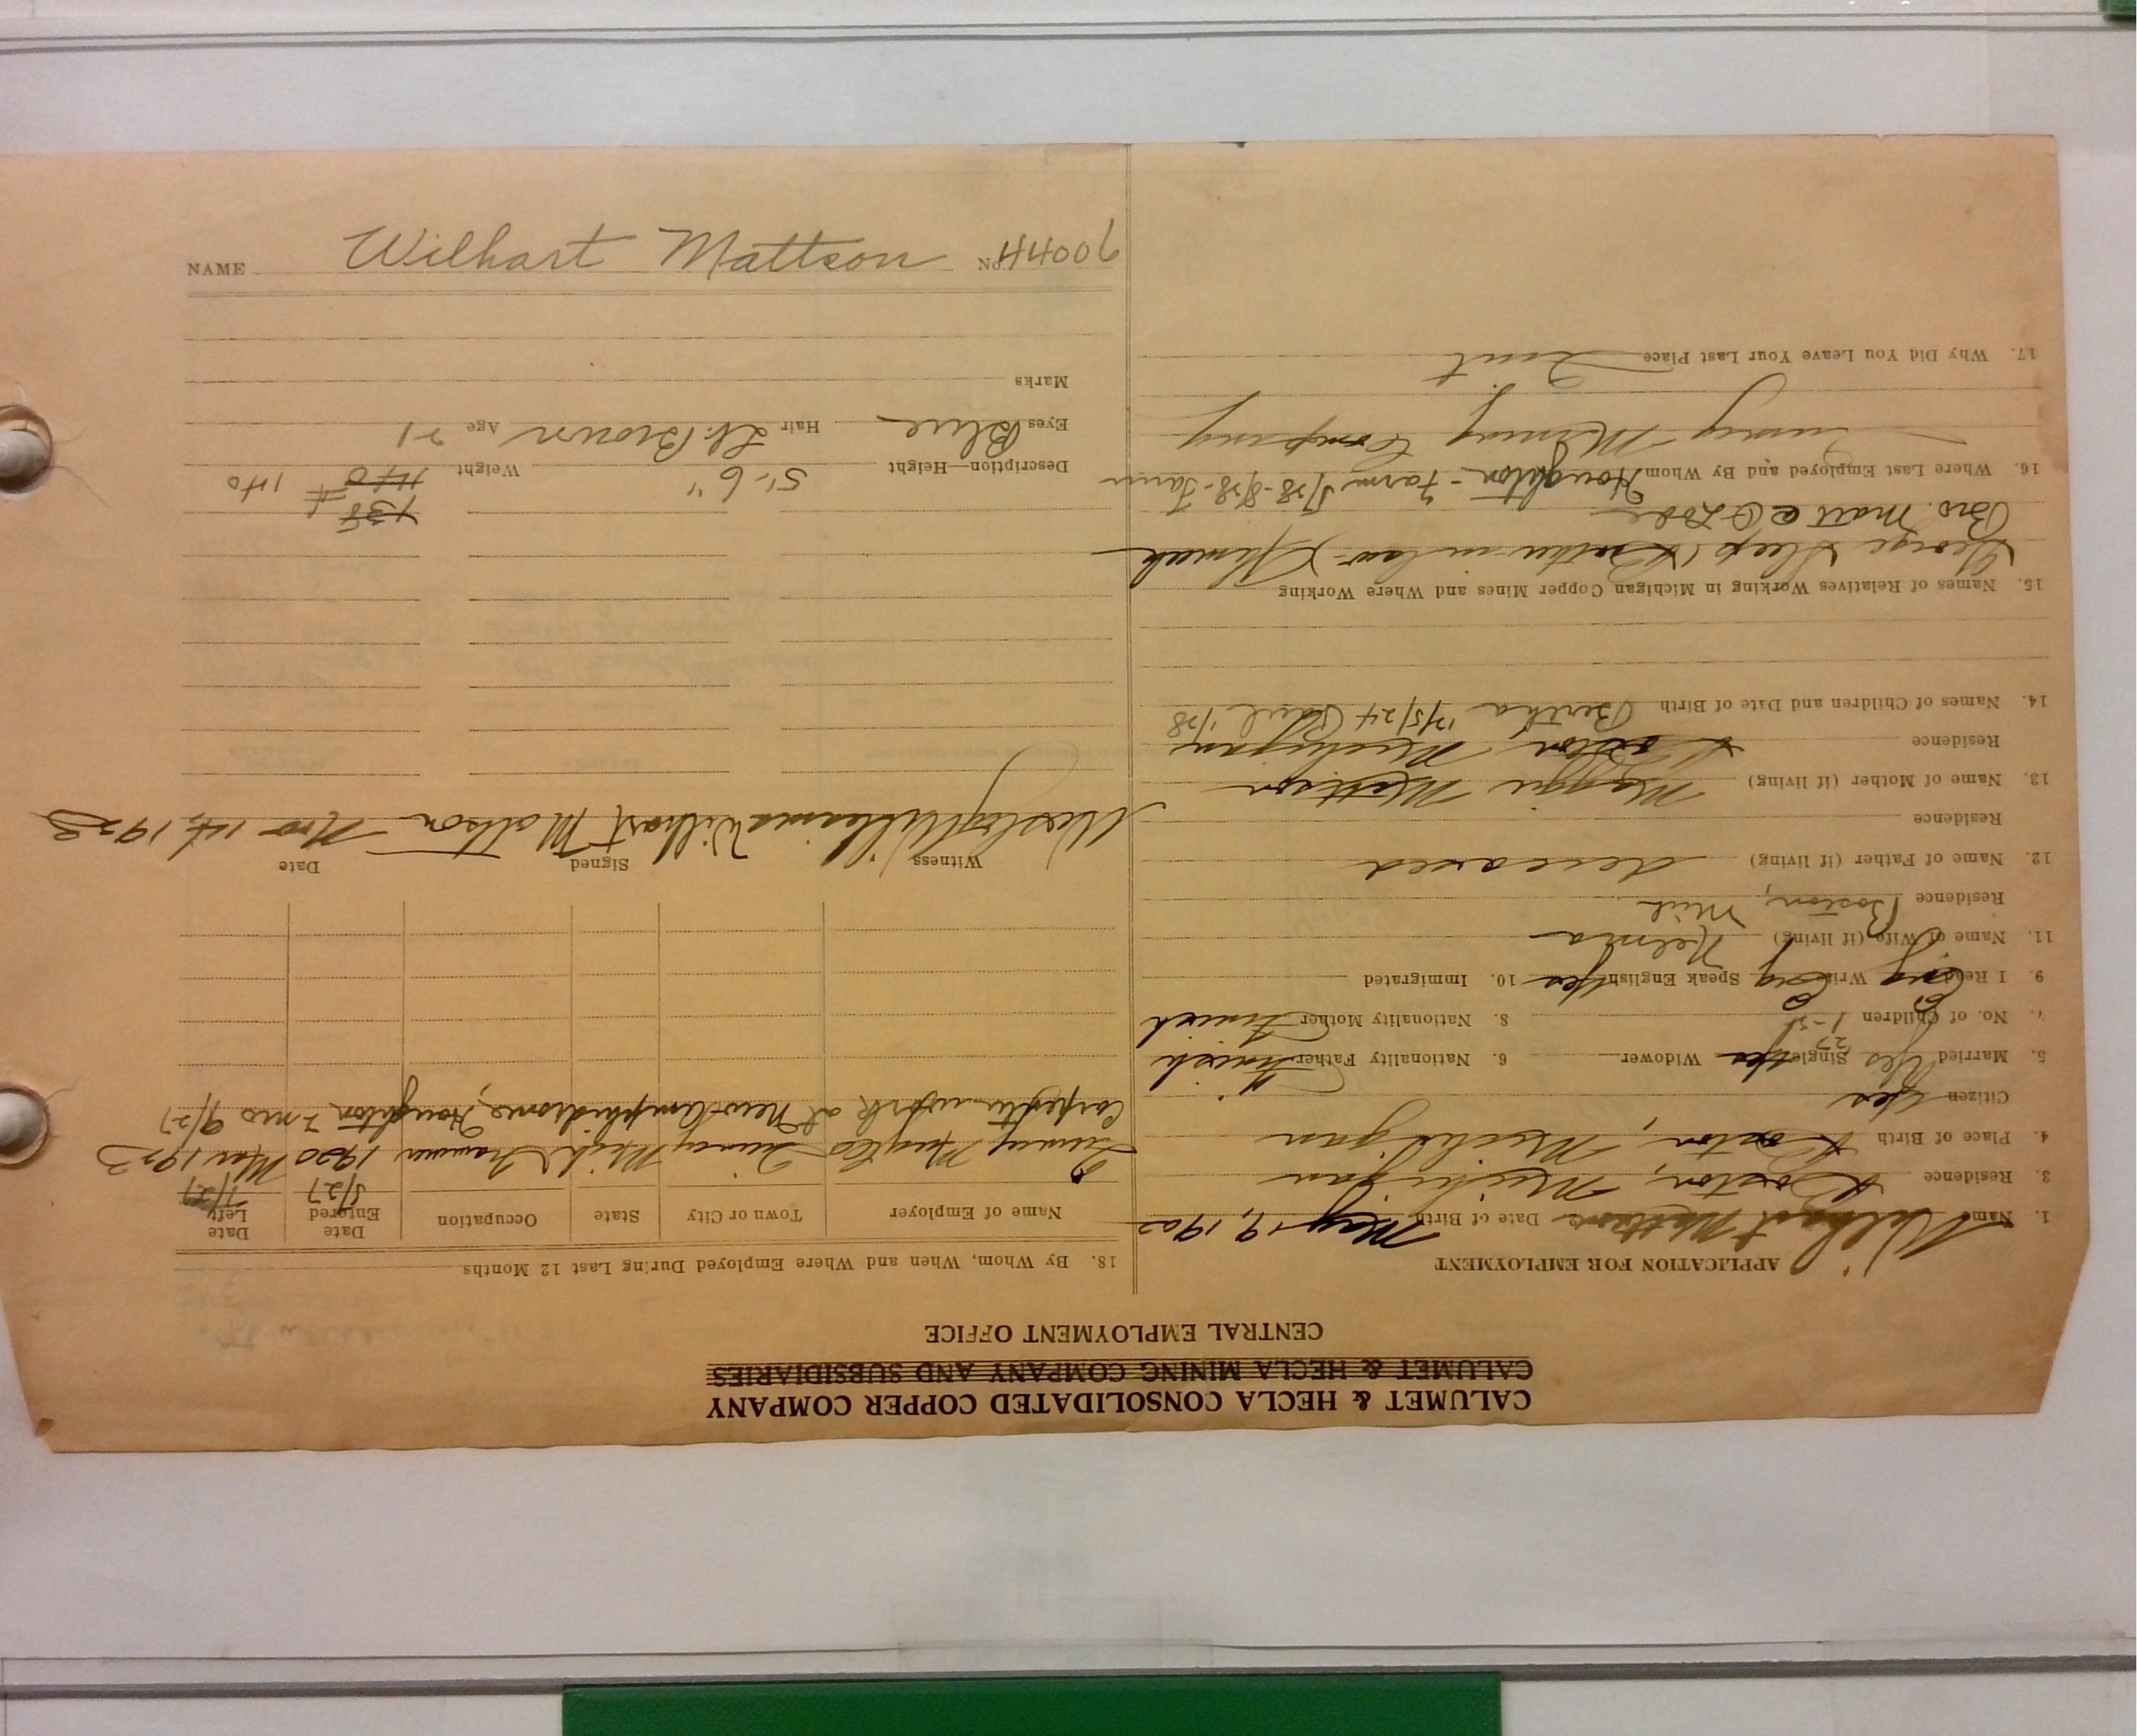 CALUMET & HECLA CONSOLIDATED COPPER COMPANY
CALUMET & HECLA MINING COMPANY AND SUBSIDIARIES
CENTRAL EMPLOYMENT OFFICE
APPLICATION FOR EMPLOYMENT
1. Name Wilhart Mattson Date of Birth May 19, 1902
3. Residence Boston, Michigan
4. Place of Birth Boston, Michigan
Citizen Yes
5. Married Yes Single Yes Widower 6. Nationality Father Finnish
27
7. No. of Children 1-31 8. Nationality Mother Finnish
9. I Read Eng Write Eng Speak English Yes 10. Immigrated
11. Name of Wife (if living)
Residence Boston, Mich
12. Name of Father (if living) deceased
Residence
13. Name of Mother (if living) Maggie Mattson
Residence Boston Michigan
14. Names of Children and Date of Birth Bertha 12/5/24 1/28
15. Names of Relatives Working in Michigan Copper Mines and Where Working
George Sleep (Brother in law) Ahmeek
Bro. Matt @
16. Where Last Employed and By Whom Houghton - Farm 5/28-8/28-Farm
Quincy Mining Company
17. Why Did You Leave Your Last Place Quit
18. By Whom, When and Where Employed During Last 12 Months
Name of Employer Town or City State Occupation Date Entered Date Left
5/27 7/27
Quincy Mng Co Quincy Mich Trammer 1920 Mar 1923
Carpenter work at New Amphidrome, Houghton 2 mos 9/27
Witness Signed Date
Wesley Williams Wilhart Mattson Nov 14, 1923
138 #
Description—Height 5'-6" Weight 140 140
Eyes Blue Hair Lt. Brown Age 21
Marks
NAME Wilhart Mattson No. 44007